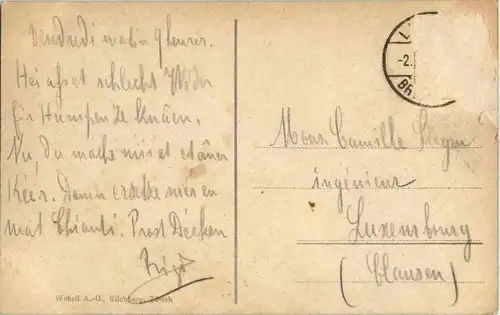 Vendredi matin 9 heures.
Hei ass et schlecht
fir Humpen ze
Nu, Du mache mir et eanner
Kéer. Dann ersetze mir en
mat Chianti. Prost Décken
Mons. Camille Siegen
ingénieur
Luxembourg
(Clausen)
-2.
Wehrli A.-G., Kilchberg, Zürich